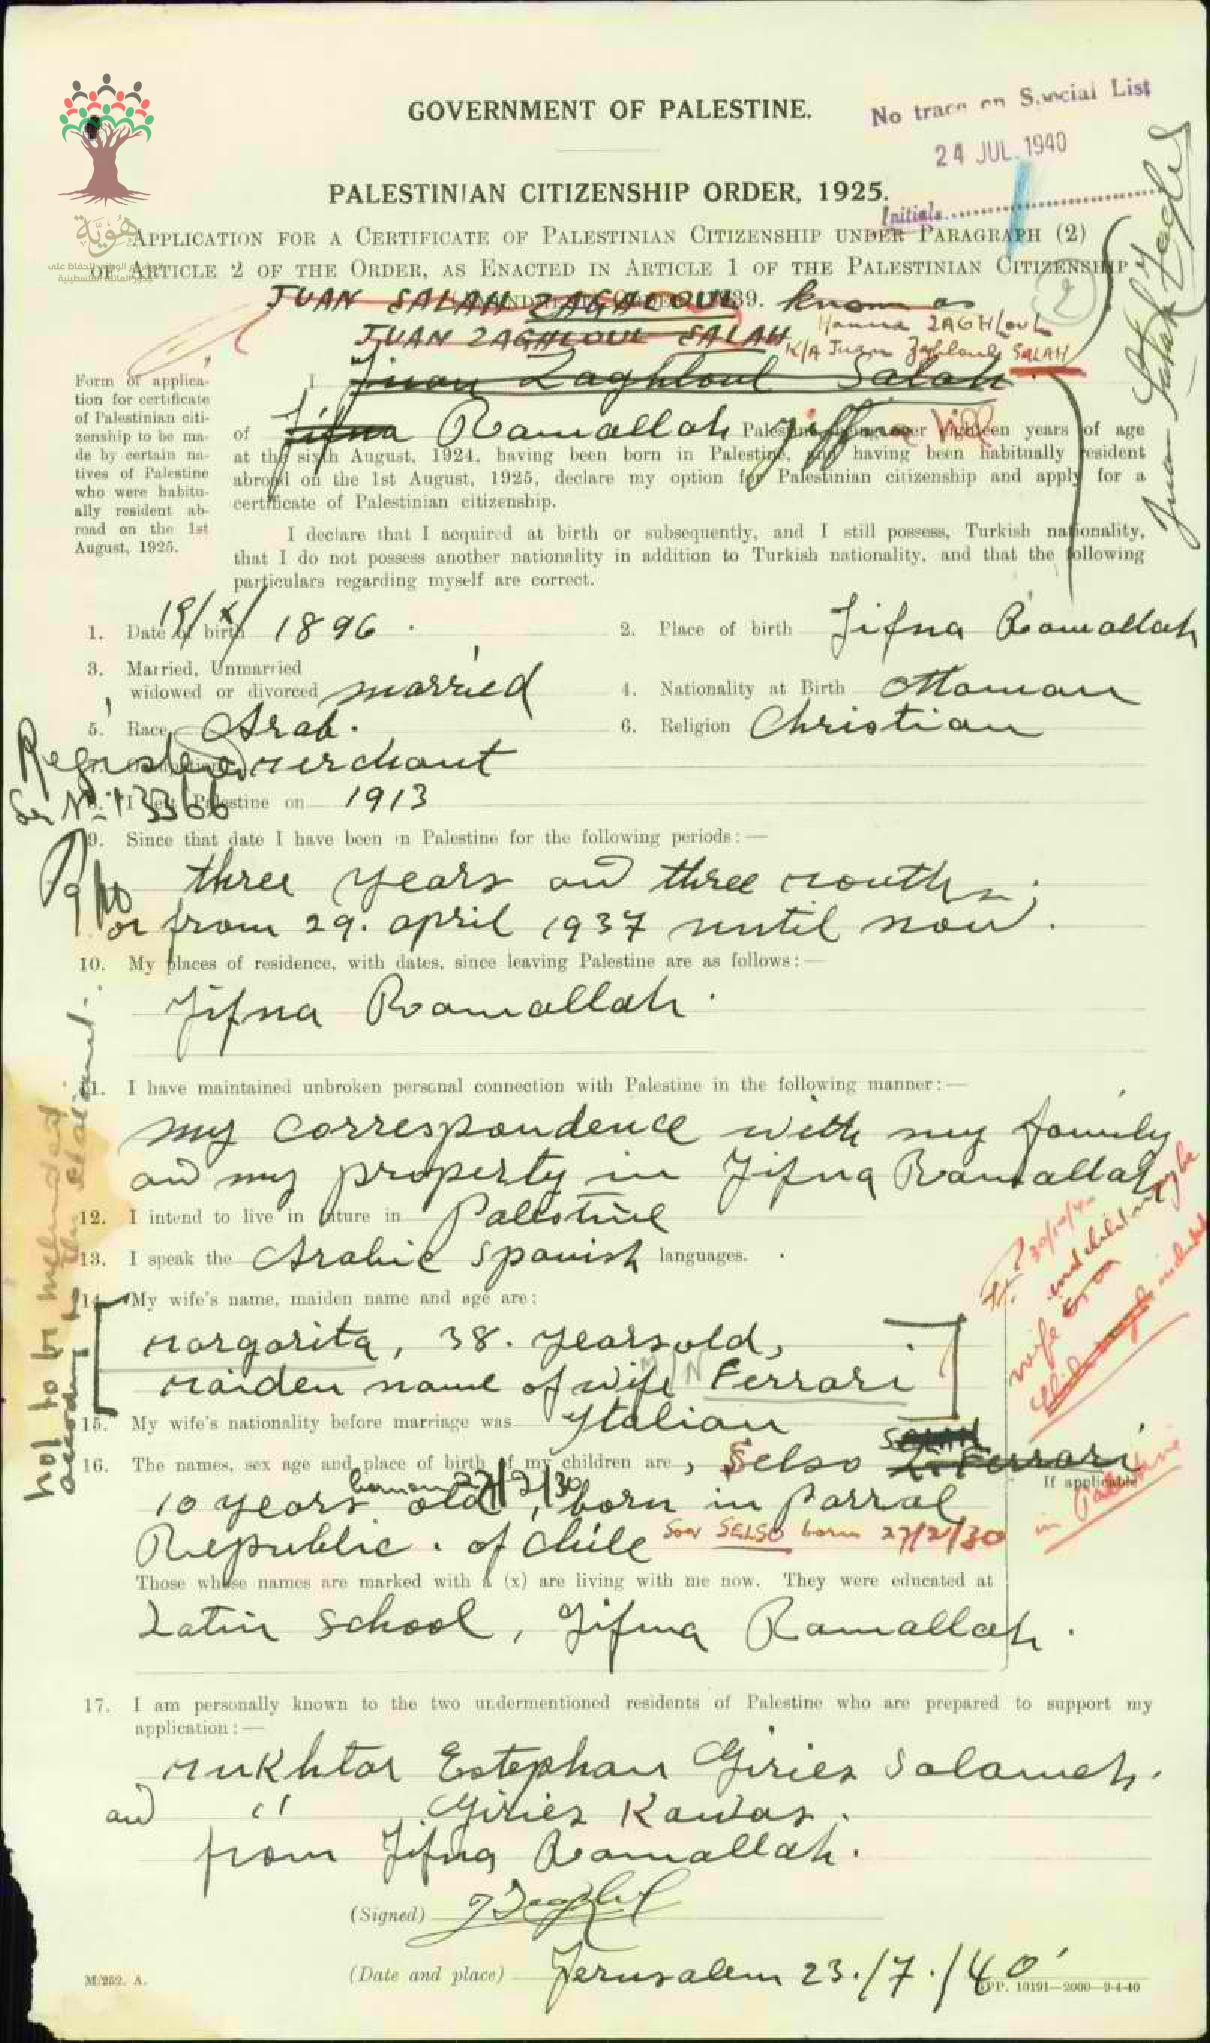 GOVERNMENT OF PALESTINE.
No trace on Special List
24 JUL. 1940
Initials
PALESTINIAN CITIZENSHIP ORDER, 1925.
APPLICATION FOR A CERTIFICATE OF PALESTINIAN CITIZENSHIP UNDER PARAGRAPH (2)
OF ARTICLE 2 OF THE ORDER, AS ENACTED IN ARTICLE 1 OF THE PALESTINIAN CITIZENSHIP
هُوِيَّة
JUAN SALAH ZAGHLOUL known as
JUAN ZAGHLOUL SALAH
Hanna ZAGHLOUL
K/A Juan Zaghloul SALAH
2
Juan Salah Zaghloul
Form of applica-
tion for certificate
of Palestinian citi-
zenship to be ma-
de by certain na-
tives of Palestine
who were habitu-
ally resident ab-
road on the 1st
August, 1925.
I Juan Zaghloul Salah
of Jifna Ramallah Jiffna Vill Palestine, being over eighteen years of age
at the sixth August, 1924, having been born in Palestine, and having been habitually resident
abroad on the 1st August, 1925, declare my option for Palestinian citizenship and apply for a
certificate of Palestinian citizenship.
I declare that I acquired at birth or subsequently, and I still possess, Turkish nationality,
that I do not possess another nationality in addition to Turkish nationality, and that the following
particulars regarding myself are correct.
1. Date of birth 19/X/1896.
2. Place of birth Jifna Ramallah
3. Married, Unmarried
widowed or divorced married
4. Nationality at Birth Ottoman
5. Race Arab.
6. Religion Christian
Registered
merchant
Ser No. 13366
8. I left Palestine on 1913
9. Since that date I have been in Palestine for the following periods:—
three years and three months;
or from 29. april 1937 until now.
10. My places of residence, with dates, since leaving Palestine are as follows:—
Jifna Ramallah.
11. I have maintained unbroken personal connection with Palestine in the following manner:—
my correspondence with my family
and my property in Jifna Ramallah
12. I intend to live in future in Palestine
13. I speak the Arabic Spanish languages.
14. My wife's name, maiden name and age are:
Margarita, 38. years old,
Maiden name of wife Ferrari
not to be included
15. My wife's nationality before marriage was Italian
16. The names, sex age and place of birth of my children are, Selso Z. Ferrari
SALAH
If applicable
born on 27/2/30
10 years old, born in Parral
Republic. of Chile Son SELSO born 27/2/30
wife
and child may be
in Palestine
Those whose names are marked with a (x) are living with me now. They were educated at
Latin School, Jifna Ramallah.
17. I am personally known to the two undermentioned residents of Palestine who are prepared to support my
application:—
Mukhtar Estephan Giries Salameh.
and " Giries Kawas.
from Jifna Ramallah.
(Signed)
(Date and place) Jerusalem 23./7./40
M/252. A.
GPP. 10191—2000—9-4-40